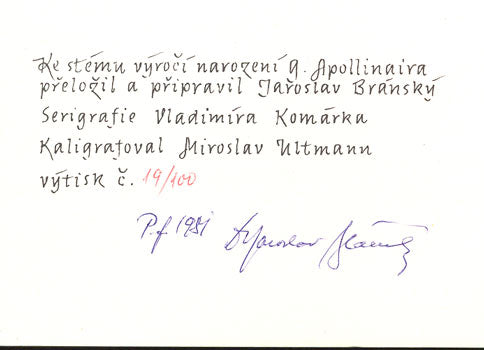 Ke stému výročí narození G. Apollinaira
přeložil a připravil Jaroslav Bránský
Serigrafie Vladimíra Komárka
Kaligrafoval Miroslav Ultmann
výtisk č. 19/100
P.f. 1981 Jaroslav